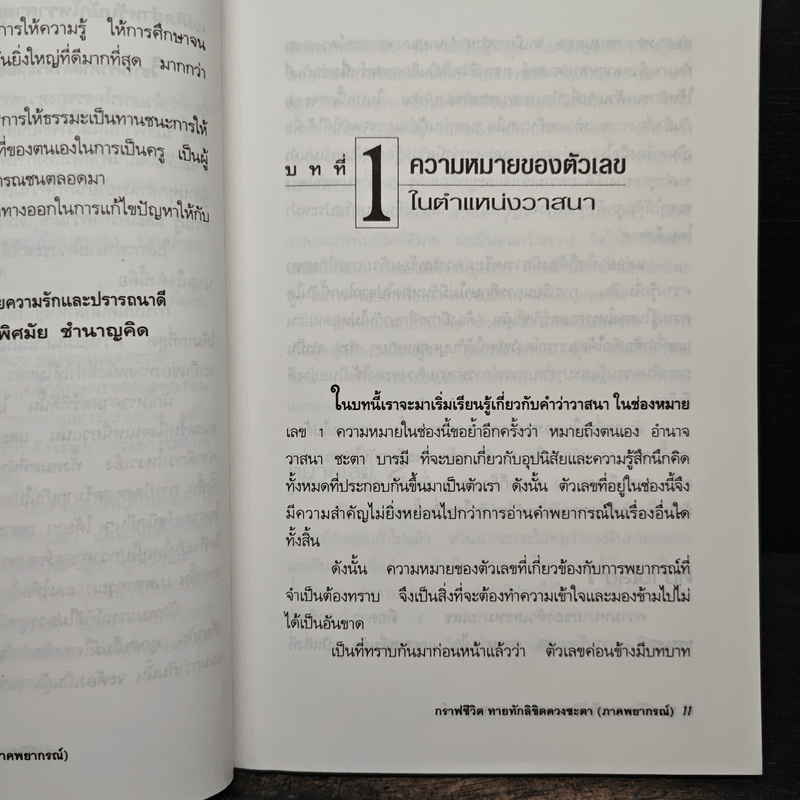 การให้ความรู้ ให้การศึกษาจน
ันยิ่งใหญ่ที่ดีมากที่สุด มากกว่า
การให้ธรรมะเป็นทานชนะการให้
ที่ของตนเองในการเป็นครู เป็นผู้
ารณชนตลอดมา
ทางออกในการแก้ไขปัญหาให้กับ
ยความรักและปรารถนาดี
พิศมัย ชำนาญคิด
าคพยากรณ์)
บทที่ 1 ความหมายของตัวเลข
ในตำแหน่งวาสนา
ในบทนี้เราจะมาเริ่มเรียนรู้เกี่ยวกับคำว่าวาสนา ในช่องหมาย
เลข 1 ความหมายในช่องนี้ขอย้ำอีกครั้งว่า หมายถึงตนเอง อำนาจ
วาสนา ชะตา บารมี ที่จะบอกเกี่ยวกับอุปนิสัยและความรู้สึกนึกคิด
ทั้งหมดที่ประกอบกันขึ้นมาเป็นตัวเรา ดังนั้น ตัวเลขที่อยู่ในช่องนี้จึง
มีความสำคัญไม่ยิ่งหย่อนไปกว่าการอ่านคำพยากรณ์ในเรื่องอื่นใด
ทั้งสิ้น
ดังนั้น ความหมายของตัวเลขที่เกี่ยวข้องกับการพยากรณ์ที่
จำเป็นต้องทราบ จึงเป็นสิ่งที่จะต้องทำความเข้าใจและมองข้ามไปไม่
ได้เป็นอันขาด
เป็นที่ทราบกันมาก่อนหน้าแล้วว่า ตัวเลขค่อนข้างมีบทบาท
กราฟชีวิต ทายทักลิขิตดวงชะตา (ภาคพยากรณ์) 11